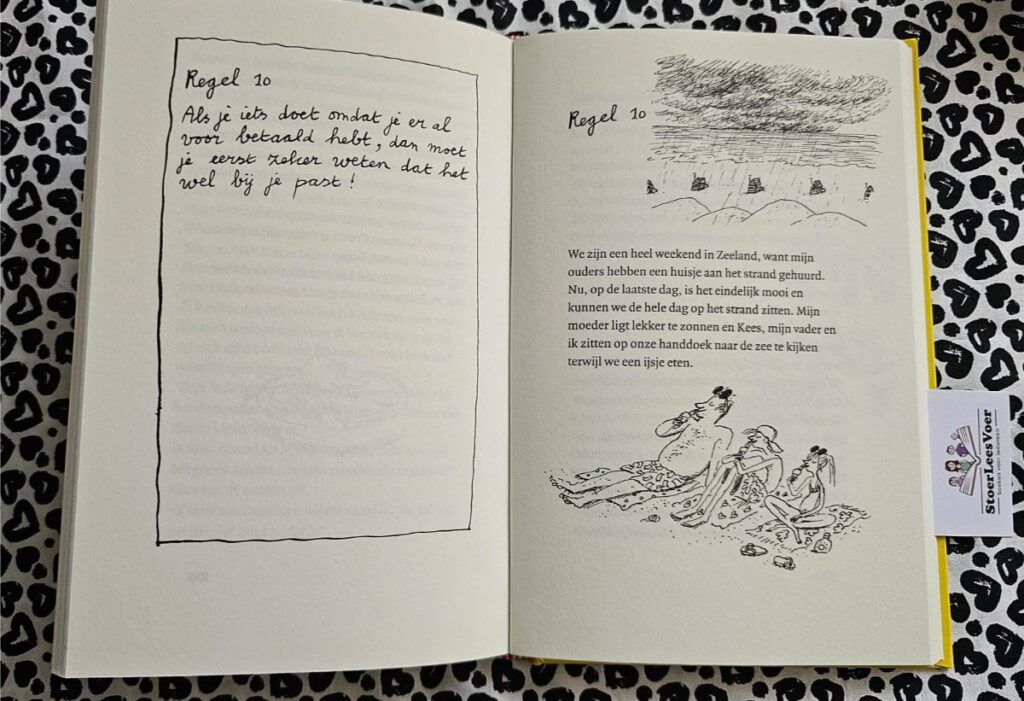 Regel 10
Als je iets doet omdat je er al
voor betaald hebt, dan moet
je eerst zeker weten dat het
wel bij je past!
Regel 10
We zijn een heel weekend in Zeeland, want mijn
ouders hebben een huisje aan het strand gehuurd.
Nu, op de laatste dag, is het eindelijk mooi en
kunnen we de hele dag op het strand zitten. Mijn
moeder ligt lekker te zonnen en Kees, mijn vader en
ik zitten op onze handdoek naar de zee te kijken
terwijl we een ijsje eten.
StoerLeesVoer
boeken voor iedereen